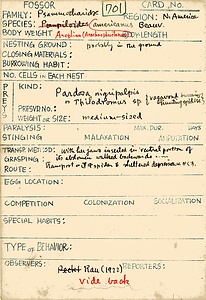 FOSSOR CARD NO.
FAMILY: Psammocharidae 701 REGION: N. America
SPECIES: Pompiloides (americanus Beauv.
BODY WEIGHT LENGTH
NESTING GROUND: partially in the ground
CLOSING MATERIALS:
BURROWING HABIT:
NO. CELLS IN EACH NEST
PREYS
KIND: Pardosa nigripalpis
n Philodromus sp. hunting spiders
PRESVD NO.:
WEIGHT OR SIZE: medium-sized
PARALYSIS: MAX. DUR. HRS
STINGING MALAXATION AMPUTATION
TRANSP. METHOD: With her jaws inserted in ventral portion of
GRASPING: its abdomen walked backwards
ROUTE: Transport on
EGG LOCATION:
COMPETITION COLONIZATION SOCIALIZATION
SPECIAL HABITS:
TYPE OF BEHAVIOR:
OBSERVERS: Rau (1922) REPORTERS:
vide back